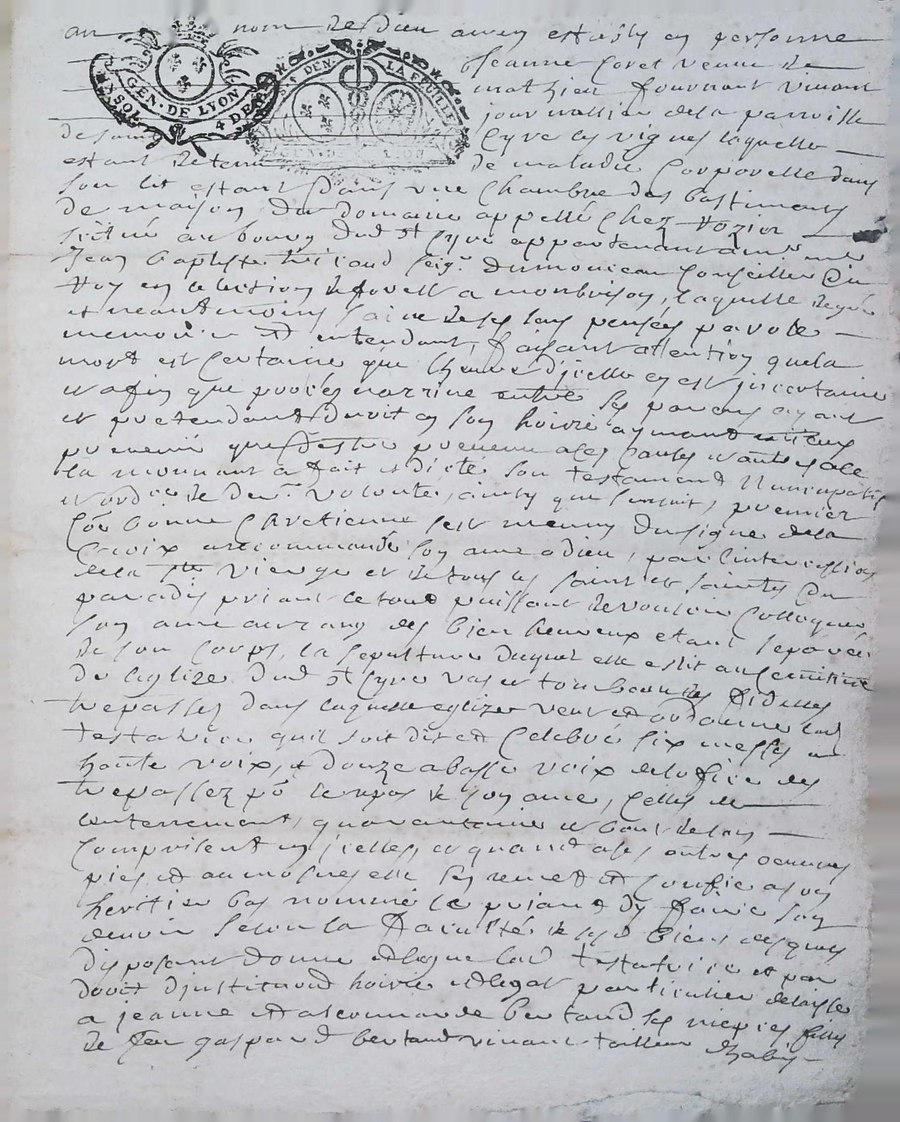 au nom de Dieu amen establye en personne
Jeanne Coret veuve de
mathieu fournand vivant
journallier de la parroisse
de saint Cyre les vignes laquelle
estant detenue de maladie Corporelle dans
son lit estant dans une Chambre des bastiments
de maison du domaine appellé Chez
scitué au bourg dud st Cyre appartenant a
Jean baptiste seigr Dumonceau Conseiller du
Roy en election de forest a montbrison, laquelle
et neantmoins saine de ses sens pensées parole
memoire et entendant, faisant attention que la
mort est certaine que l'heure d'jcelle en est jncertaine
et afin que procez narrive entre ses parens ayant
et pretendant droit en son hoirie aymant mieux
prevenir que destre prevenue
la mourant a fait et dicté son testament Nuncupatif
et ordce de dere volonté, ainsy que sensuit, premier
Coe bonne Chretienne sest munny du signe de la
Croix a recommandé son ame a dieu, par lintercession
de la ste vierge et de tous les saint et saintes du
paradis priant le tout puissant de vouloir Colloquer
son ame au rang des bien heureux estant separée
de son Corps, la sepulture duquel elle eslit au Cemittiere
de leglize dud st Cyre vas et tombeau des fidelles
trepassez dans laquelle eglize veut et ordonne lad
testatrice quil soit dit et Celebré six messes a
haute voix, et douze a basse voix de lofice des
trepassez pr le repos de son ame, Celles de
lenterrement, quarantenne et bout de lan
Comprises en jcelles, et quand a ses autres oeuvres
pies et aumosnes elle sen remet et Confie a son
heritier bas nommé le priant dy faire son
devoir selon la faculté de ses biens desquels
disposant donne et legue lad testatrice et par
droit djnstituon hoirie et legat particulier delaisse
a jeanne et bertaud ses niepces filles
de feu gaspard bertaud vivant tailleur dhabis
GEN. DE LYON
4 DEN.
DEN. LA FEUILLE